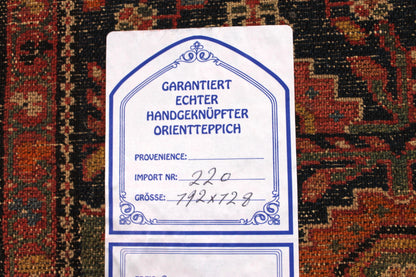 GARANTIERT
ECHTER
HANDGEKNÜPFTER
ORIENTTEPPICH
PROVENIENCE:
IMPORT NR: 220
GRÖSSE: 192x128